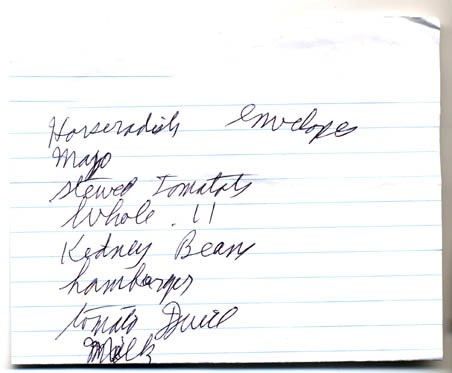 Horseradish envelopes
Mayo
Stewed Tomatots
Whole . 11
Kedney Beans
hamberger
tomato Juice
Milk